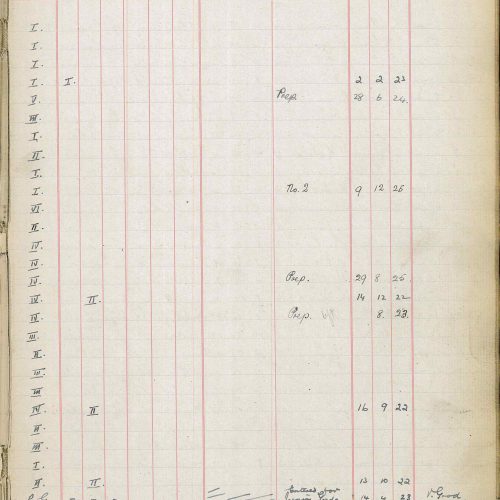 I.
I.
I.
I. I. 2 2 23
V. Prep 28 6 24.
III.
I.
II.
I.
I. No. 2 9 12 26
VI.
II.
IV.
IV.
IV. Prep. 29 8 25.
IV. II 14 12 22
IV. Prep. 8. 23.
III.
II.
III.
III
IV II 16 9 22
II.
III.
I.
II. II. 13 10 22
14 23 V. Good